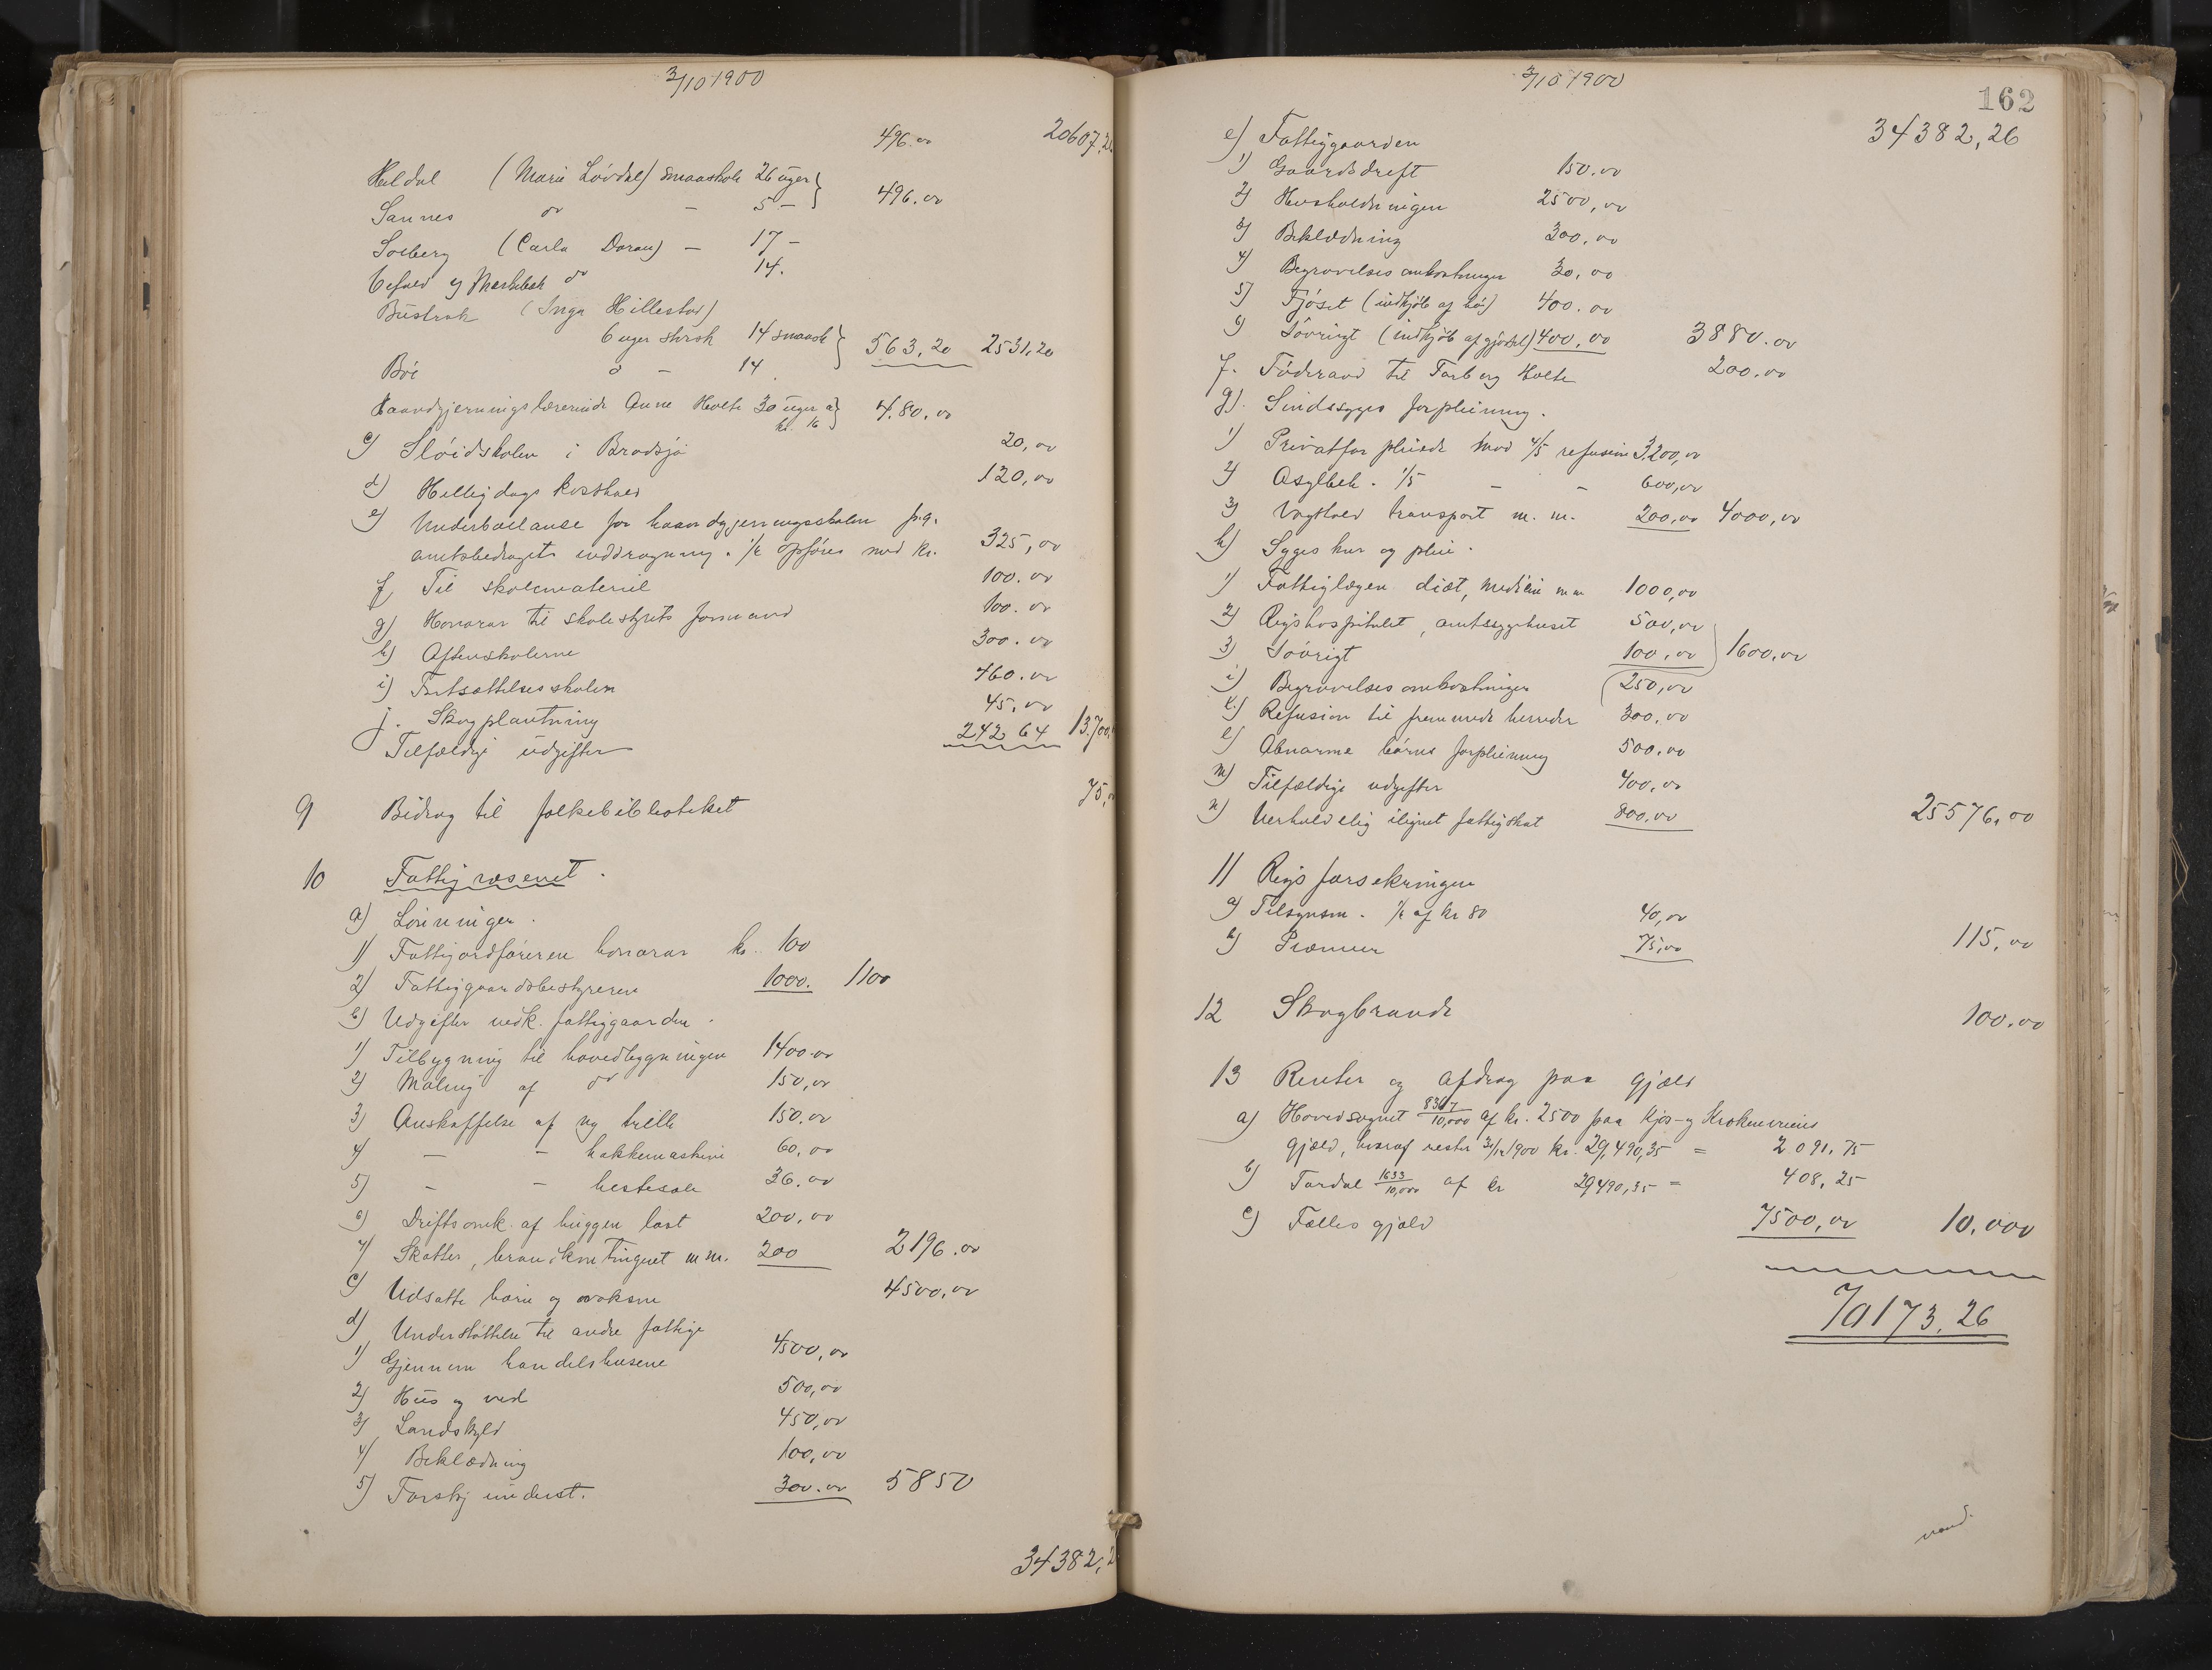 3/10 1900
496.00 20607,2
Heldal (Marie Lövdal) smaaskole 26 uger } 496.00
Sannes do – 5 –
Solberg (Carla Doran) – 17 –
do 14.
Büstrak (Inga Hillestad)
6 uger storsk 14 smaask } 563,20 2531,20
Böe d – 14
Haandgjerningslærerinde Anne Holte 30 uger a kr. 16 } 480.00
c) Slöidskolen i Bradsjö 20,00
d) Helligdags kosthold 120,00
e) Underballanse for haandgjerningsskolen p.g.
amtsbidragets inddragning. 1/2 opföres med kr. 325,00
f Til skolemateriel 100.00
g) Honorar til skolestyrets formand 100.00
h) Aftenskolerne 300.00
i) Fortsættelsesskolen 460.00
j. Skogplantning 45,00
Tilfældige udgifter 242 64 13.700,
9 Bidrag til folkebibliotheket 75,
10 Fattigvæsenet.
a) Lönninger.
1) Fattigordföreren honorar kr. 100
2) Fattiggaardsbestyreren 1000. 1100
b) Udgifter vedk. fattiggaarden.
1) Tilbygning til hovedbygningen 1400.00
2) Maling af do 150,00
3) Anskaffelse af ny trille 150.00
4) – – hakkemaskine 60,00
5) – – hestesele 36.00
6) Driftsomk. af huggen last 200,00
7) Skatter, brandkontingent m m. 200 2196.00
c) Udsatte börn og voksne 4500,00
d) Understöttelse til andre fattige
1) Gjennem handelshusene 4500,00
2) Hus og ved 500,00
3) Landskyld 450,00
4) Beklædning 100,00
5) Forskj. underst. 300.00 5850
34382,2
3/10 1900
162
34382,26
e) Fattiggaarden
1) Gaardsdrift 150.00
2) Husholdningen 2500,00
3) Beklædning 300,00
4) Begravelsesomkostninger 30,00
5) Fjöset (indkjöb af hö) 400.00
6) Iövrigt (indkjöb af gjödsel) 400,00 3880.00
f. Föderaad til Torberg Holte 200.00
g). Sindssyges forpleining.
1) Privatforpleiede mod 4/5 refusion 3.200,00
2) Asylbeh. 1/5 – – 600,00
3) Vagthold transport m. m. 200,00 4000,00
h) Syges kur og pleie.
1) Fattiglægen diæt, medicin m m 1000,00
2) Rigshospitalet, amtssygehuset 500,00
3) Iövrigt 100,00 } 1600,00
i) Begravelsesomkostninger 250,00
k) Refusion til fremmede herreder 300.00
l) Abnorme börns forpleining 500.00
m) Tilfældige udgifter 400.00
n) Uerholdelig ilignet fattigskat 800.00 25576,00
11 Rigsforsekringen
a) Tilsynsm. 1/2 af kr 80 40,00
b) Præmier 75,00 115,00
12 Skogbrande 100.00
13 Renter og afdrag paa gjæld
a) Hovedsognet 8367/10,000 af kr. 2500 paa Kjøs- og Krokenveiens
gjæld, hvoraf rester 31/12 1900 kr. 29,490,35 = 2091,75
b) Tordal 1633/10,000 af kr 29490,35 = 408,25
c) Fælles gjæld 7500,00 10.000
70173,26
vend.